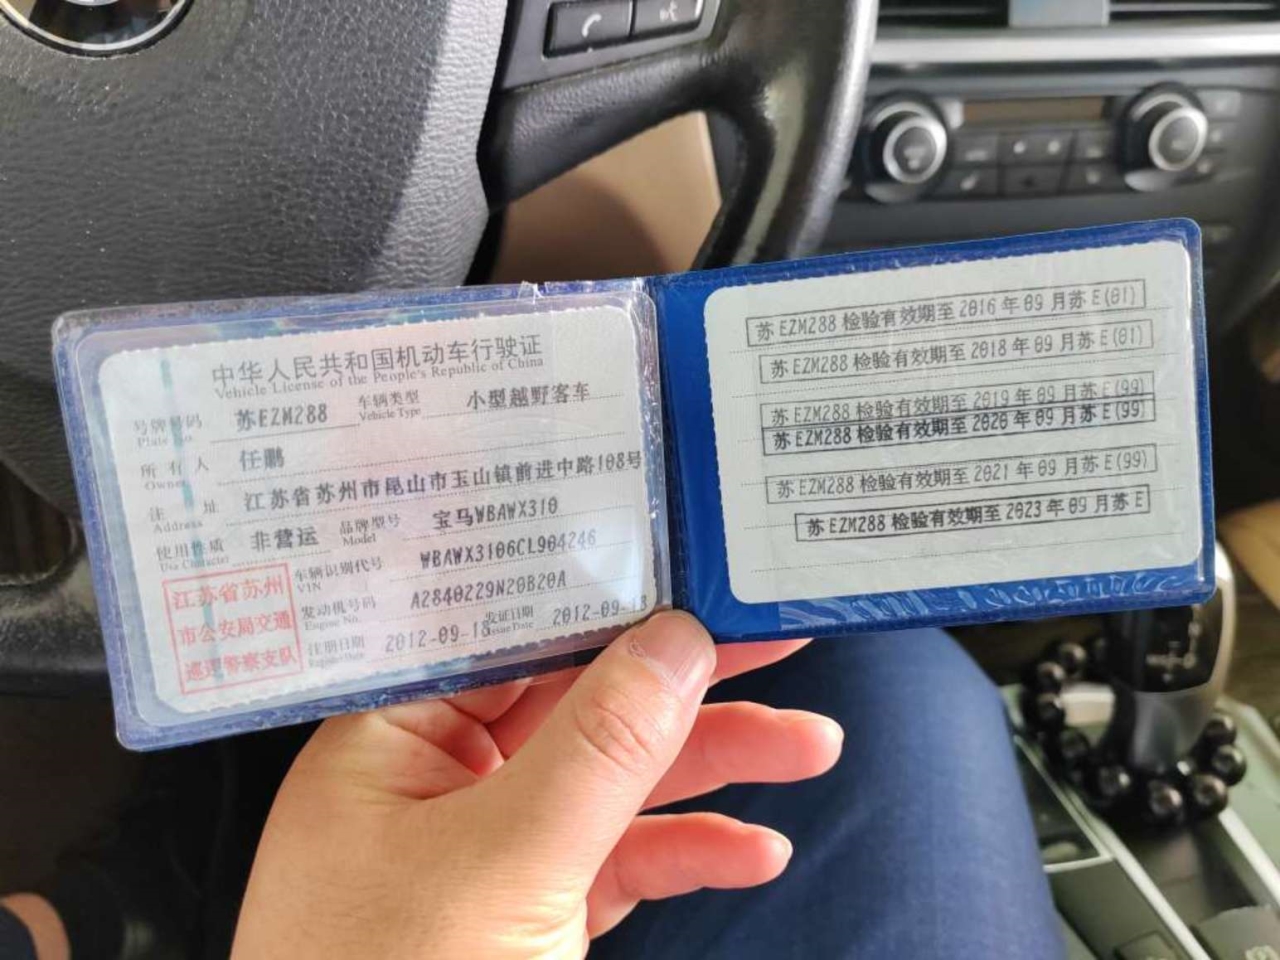 中华人民共和国机动车行驶证
Vehicle License of the People's Republic of China
号牌号码 苏EZM288 车辆类型 小型越野客车
Plate No. Vehicle Type
所有人 任鹏
Owner
住址 江苏省苏州市昆山市玉山镇前进中路108号
Address
使用性质 非营运 品牌型号 宝马WBAWX310
Use Character Model
车辆识别代号 WBAWX3106CL904246
VIN
发动机号码 A2840229N20B20A
Engine No.
注册日期 2012-09-18 发证日期 2012-09-18
Register Date Issue Date
江苏省苏州
市公安局交通
巡逻警察支队
苏EZM288 检验有效期至 2016年09月苏E(01)
苏EZM288 检验有效期至 2018年09月苏E(01)
苏EZM288 检验有效期至 2019年09月苏E(99)
苏EZM288 检验有效期至 2020年09月苏E(99)
苏EZM288 检验有效期至 2021年09月苏E(99)
苏EZM288 检验有效期至 2023年09月苏E